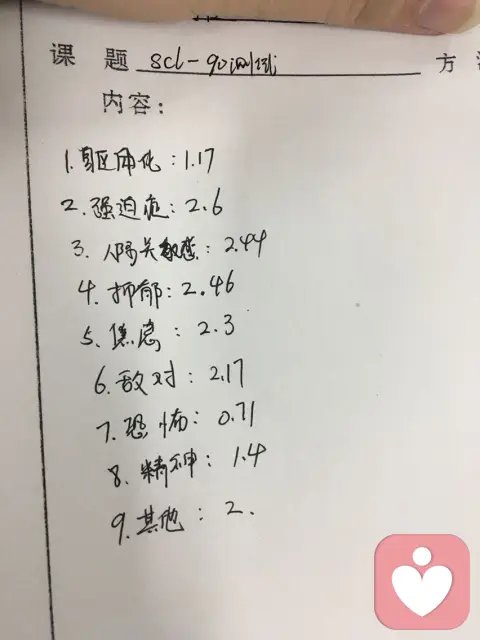 课 题 scl-90测试 方
内容：
1.躯体化：1.17
2.强迫症：2.6
3.人际关敏感：2.44
4.抑郁：2.46
5.焦虑：2.3
6.敌对：2.17
7.恐怖：0.71
8.精神：1.4
9.其他：2.